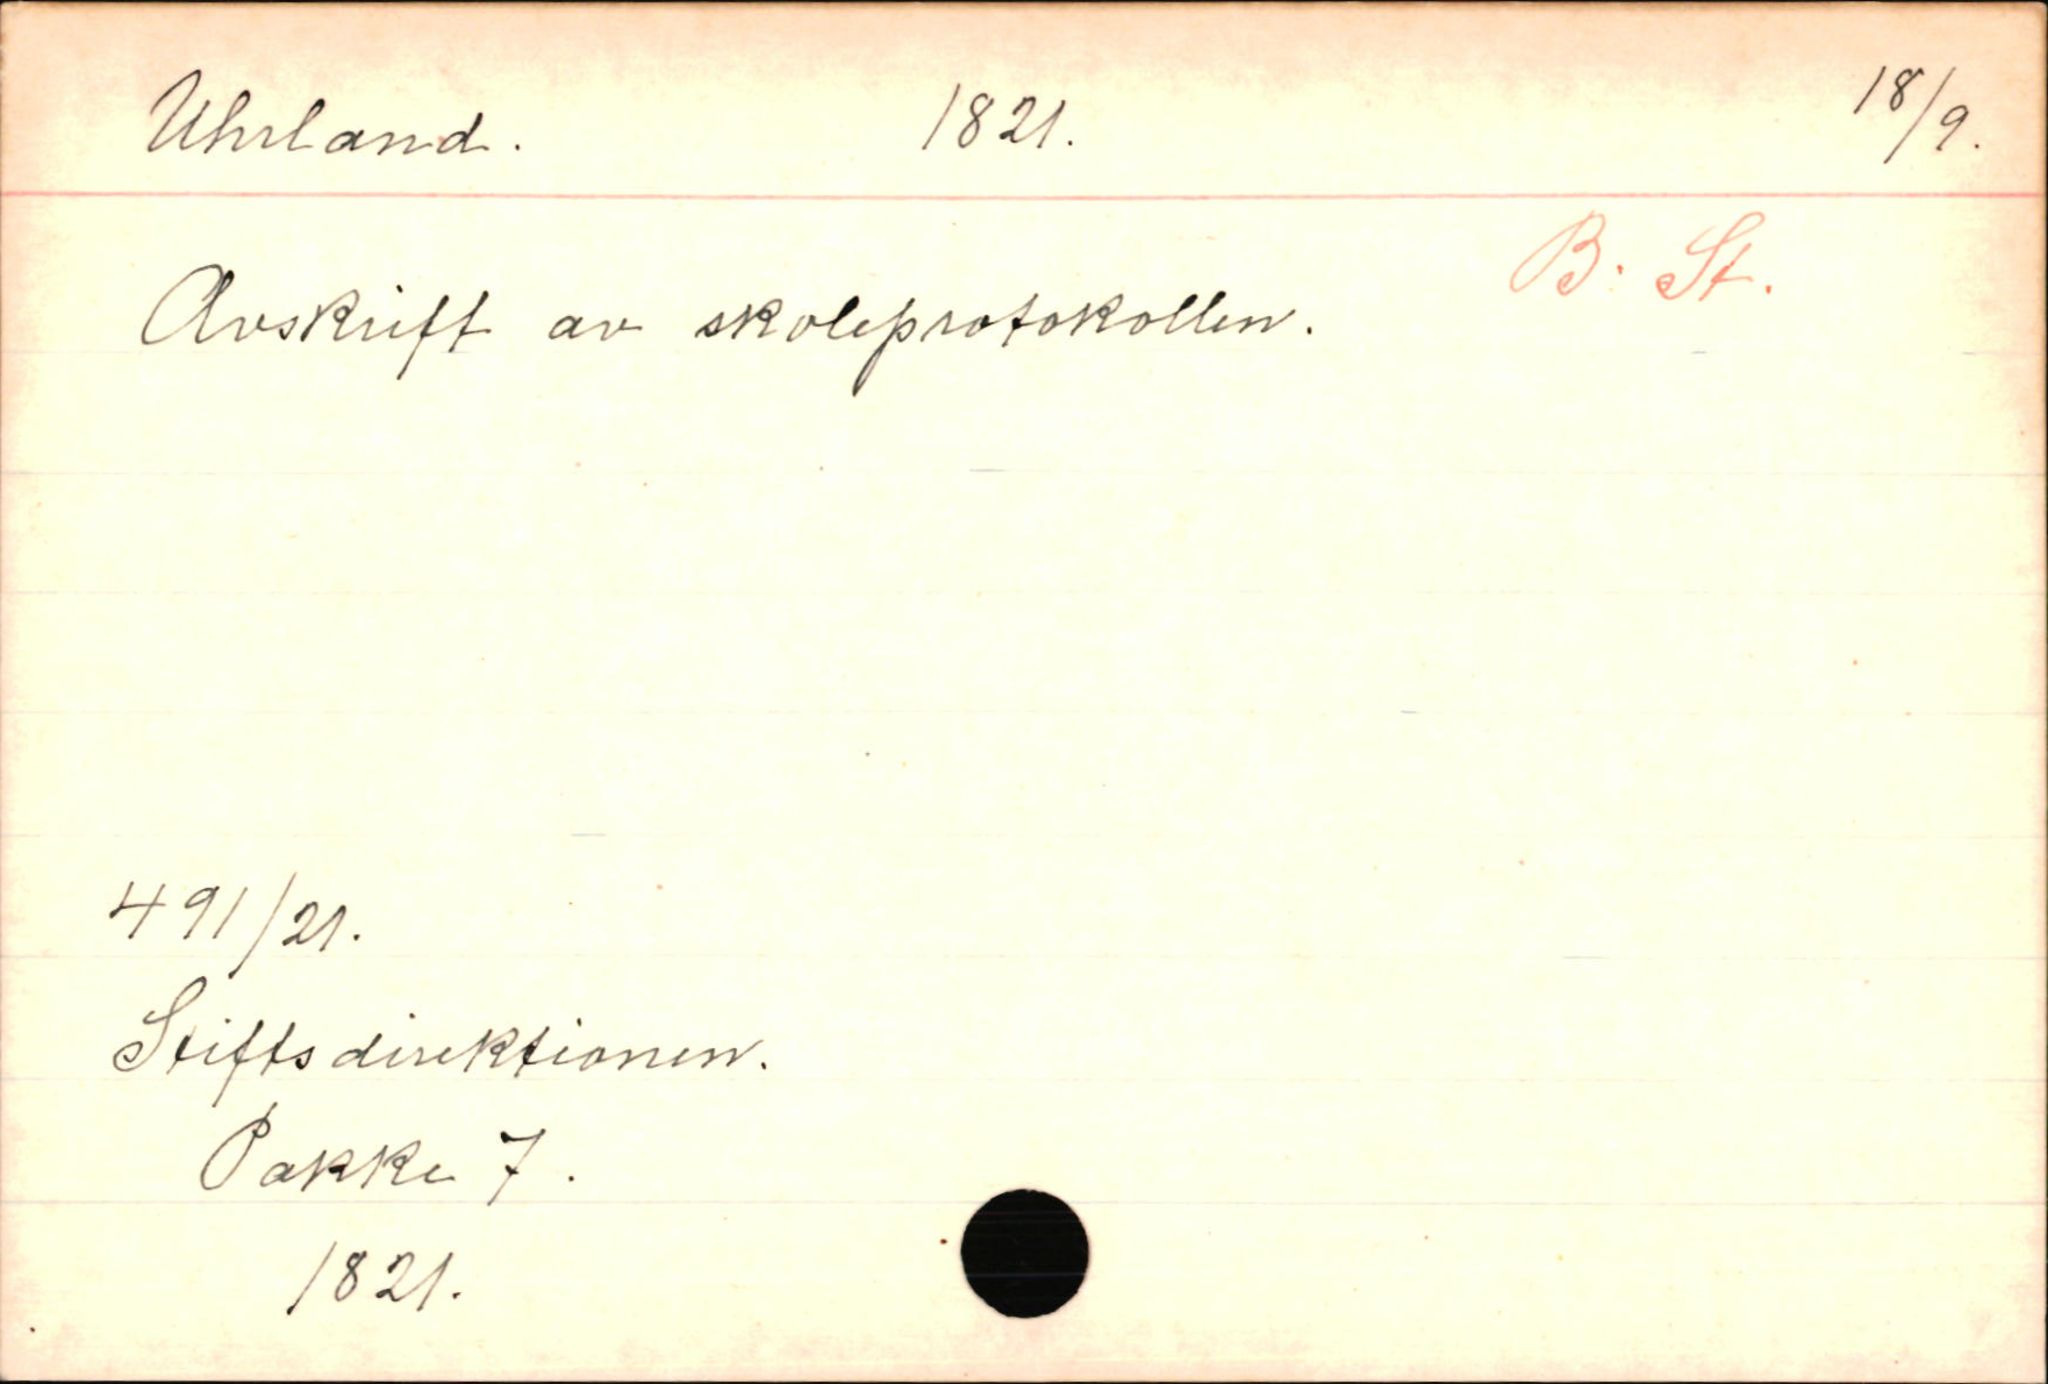 Uhrland. 1821. 18/9.
B. St.
Avskrift av skoleprotokollen.
491/21.
Stiftsdirektionen.
Pakke 7.
1821.